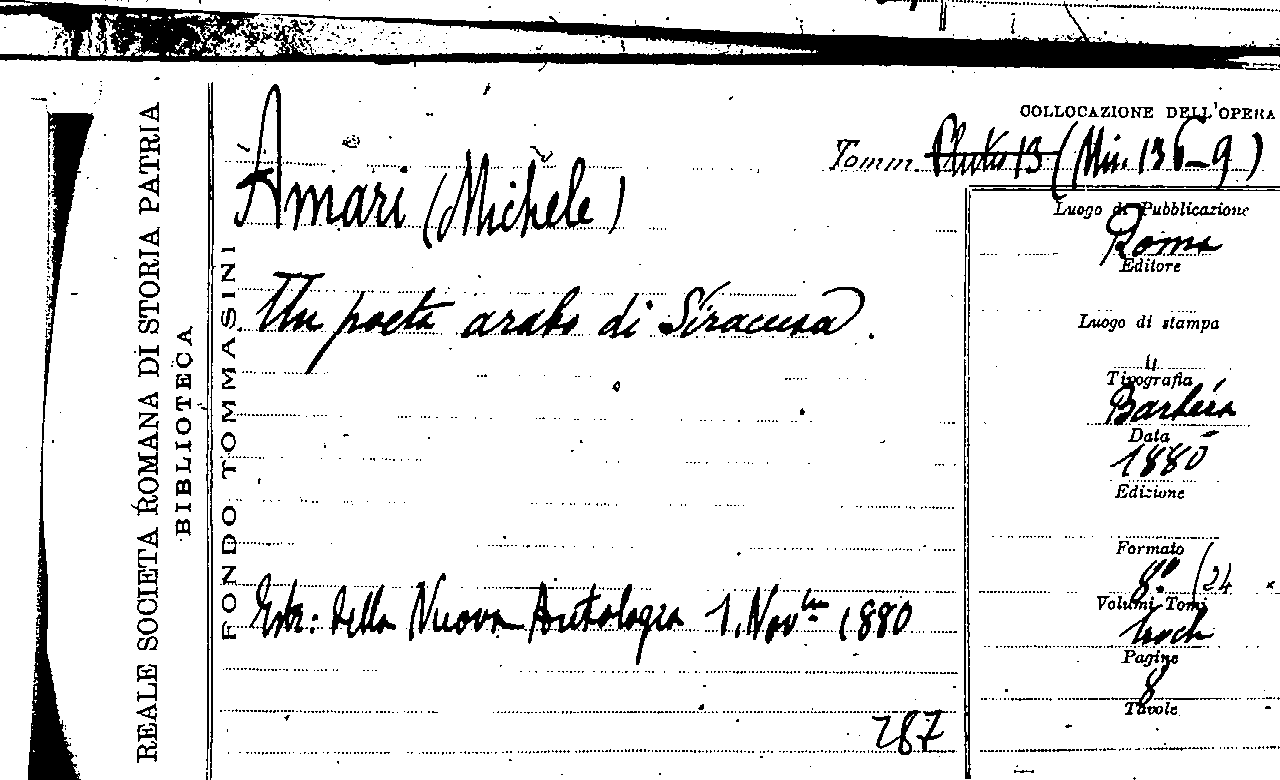 REALE SOCIETÀ ROMANA DI STORIA PATRIA
BIBLIOTECA
FONDO TOMMASINI
COLLOCAZIONE DELL'OPERA
Tomm. Pluteo 13 (Min. 136-9)
Amari (Michele)
Un poeta arabo di Siracusa.
Estr: della Nuova Antologia 1. Nov.bre 1880
287
Luogo di Pubblicazione
Roma
Editore
Luogo di stampa
Tipografia
Barbèra
Data
1880
Edizione
Formato
8º (24
Volumi Tomi
Pagine
8
Tavole